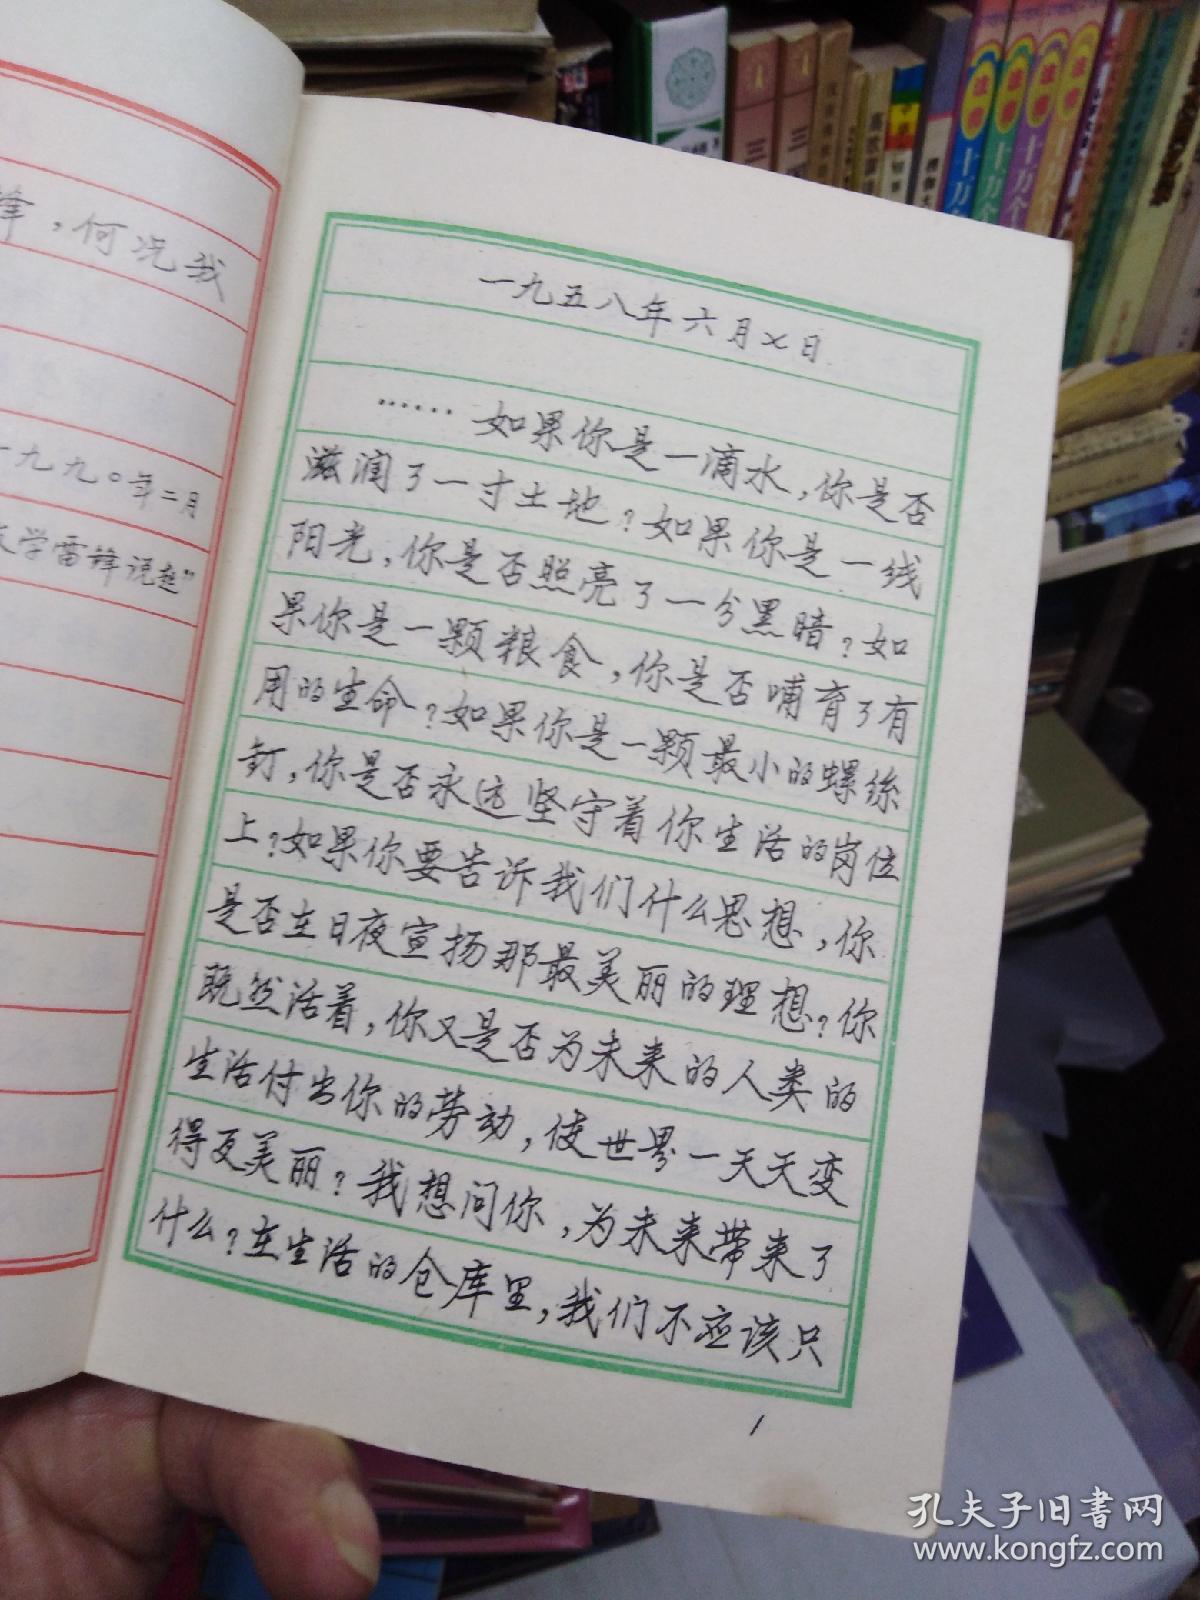 锋，何况我
一九九〇年二月
学雷锋说起”
一九五八年六月×日
……如果你是一滴水，你是否
滋润了一寸土地？如果你是一线
阳光，你是否照亮了一分黑暗？如
果你是一颗粮食，你是否哺育了有
用的生命？如果你是一颗最小的螺丝
钉，你是否永远坚守着你生活的岗位
上？如果你要告诉我们什么思想，你
是否在日夜宣扬那最美丽的理想？你
既然活着，你又是否为未来的人类的
生活付出你的劳动，使世界一天天变
得更美丽？我想问你，为未来带来了
什么？在生活的仓库里，我们不应该只
1
孔夫子旧书网
www.kongfz.com